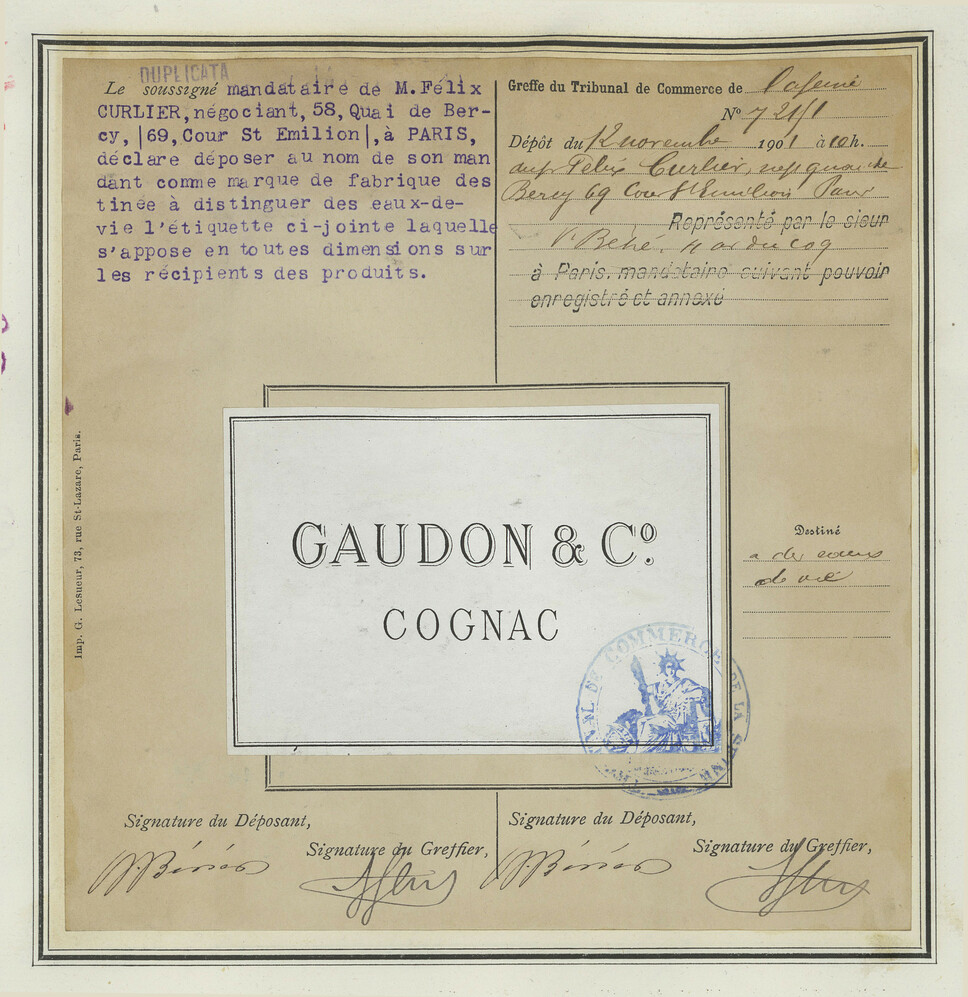 DUPLICATA
Le soussigné mandataire de M.Félix
CURLIER,négociant,58,Quai de Ber-
cy,|69,Cour St Emilion|,à PARIS,
déclare déposer au nom de son man
dant comme marque de fabrique des
tinée à distinguer des eaux-de-
vie l'étiquette ci-jointe laquelle
s'appose en toutes dimensions sur
les récipients des produits.
Greffe du Tribunal de Commerce de la Seine
Nº 7
Dépôt du 12 novembre 1901 à h.
Felix Curlier, quai de
Bercy 69 Cour St Emilion Paris
Représenté par le sieur
à Paris, mandataire suivant pouvoir
enregistré et annexé
Imp. G. Lesueur, 73, rue St-Lazare, Paris.
GAUDON & Cº.
COGNAC
Destiné
a des eaux
de vie
TRIBUNAL DE COMMERCE DE LA SEINE
Signature du Déposant,
Signature du Greffier,
Signature du Déposant,
Signature du Greffier,